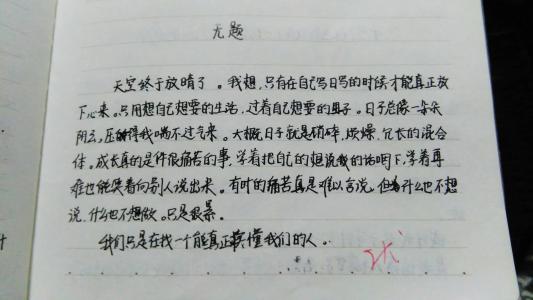 无题
天空终于放晴了。我想,只有在自己写日写的时候才能真正放
下心来。只用想自己想要的生活,过着自己想要的日子。日子总像一朵朵
阴云,压得我喘不过气来。大概日子就是琐碎、烦燥、冗长的混合
体。成长真的是件很痛苦的事,学着把自己的想说我的话咽下,学着再
难也能笑着向别人说出来。有时的痛苦真是难以言说,但为什么也不想
说,什么也不想做。只是很累。
我们只是在找一个能真正读懂我们的人。
优